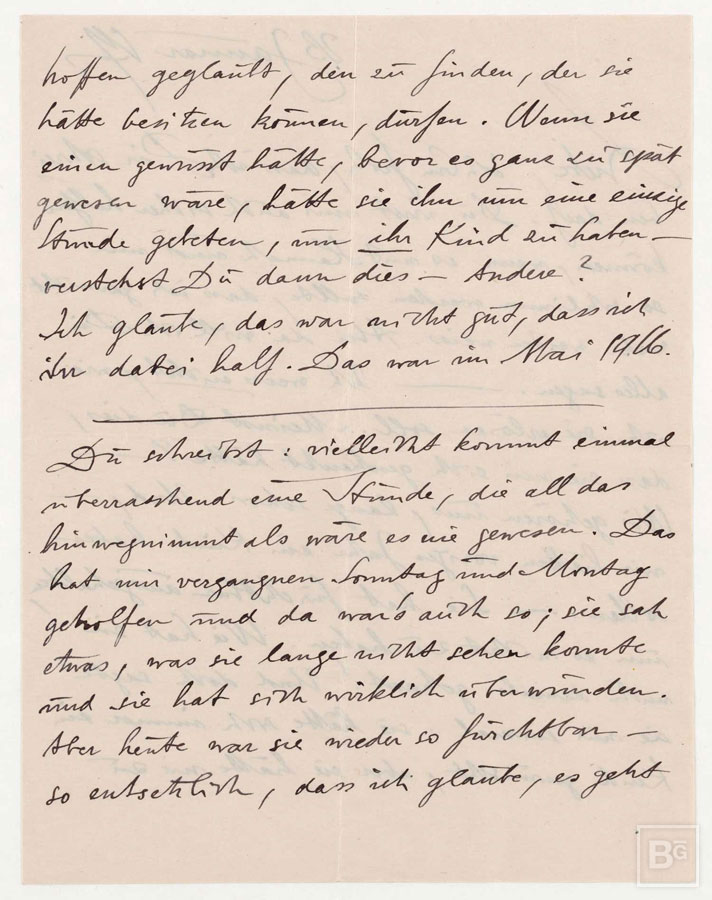 hoffen geglaubt, den zu finden, der sie
hätte besitzen können, dürfen. Wenn sie
einen gewusst hätte, bevor es ganz zu spät
gewesen wäre, hätte sie ihn um eine einzige
Stunde gebeten, um ihr Kind zu haben —
verstehst Du dann dies — Andere?
Ich glaube, das war nicht gut, dass ich
ihr dabei half. Das war im Mai 1916.
Du schreibst: vielleicht kommt einmal
überraschend eine Stunde, die all das
hinwegnimmt als wäre es nie gewesen. Das
hat mir vergangnen Sonntag und Montag
geholfen und da war's auch so; sie sah
etwas, was sie lange nicht sehen konnte
und sie hat sich wirklich überwunden.
Aber heute war sie wieder so furchtbar —
so entsetzlich, dass ich glaube, es geht
BG